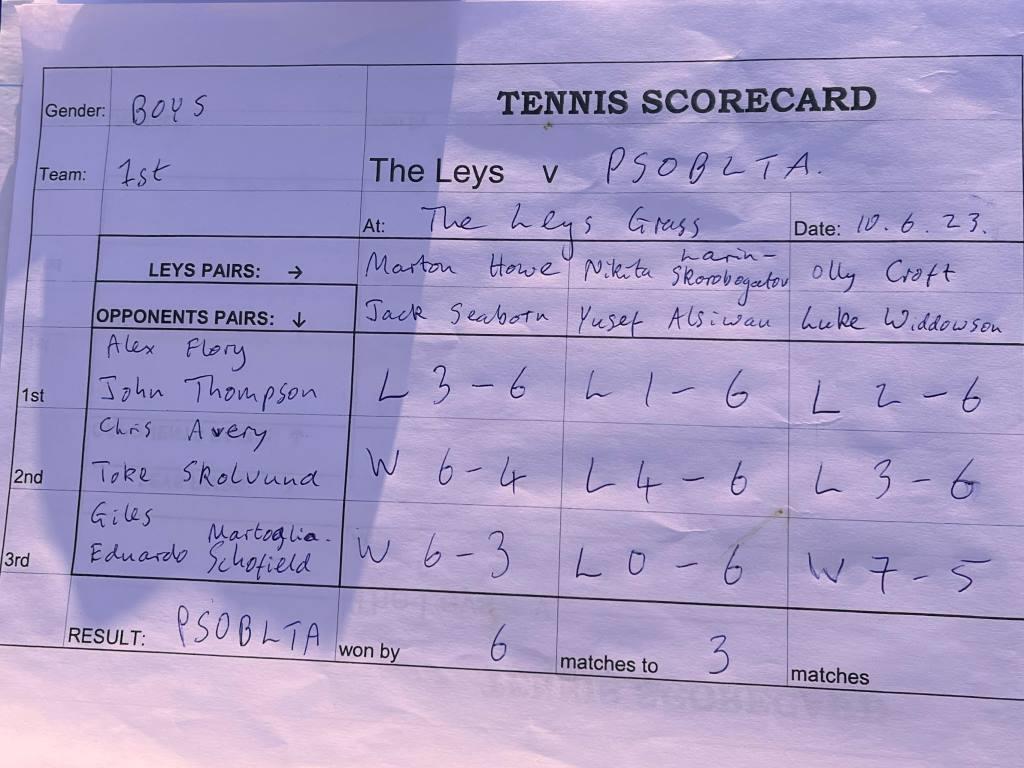 Gender: BOYS
TENNIS SCORECARD
Team: 1st
The Leys v PSOBLTA.
At: The Leys Grass
Date: 10.6.23.
LEYS PAIRS: →
Marton Howe
Nikita Larin-Skorobogatov
Olly Croft
OPPONENTS PAIRS: ↓
Jack Seaborn
Yusef Alsiwau
Luke Widdowson
Alex Flory
1st John Thompson L 3-6 L 1-6 L 2-6
Chris Avery
2nd Toke Skolvund W 6-4 L 4-6 L 3-6
Giles
3rd Eduardo Martoglia-Schofield W 6-3 L 0-6 W 7-5
RESULT: PSOBLTA won by 6 matches to 3 matches